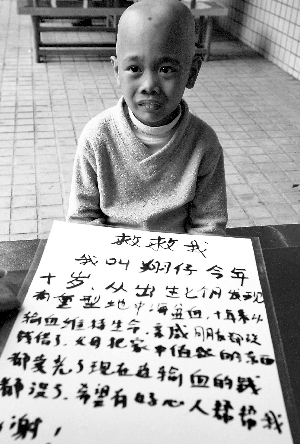 救救我
我叫翔仔今年
十岁,从出生七个月发现
有重型地中海贫血,十年来从
输血维持生命,亲戚朋友都说
钱借了,父母把家中值钱的东西
都卖光了现在连输血的钱
都没了,希望有好心人帮帮我
谢!